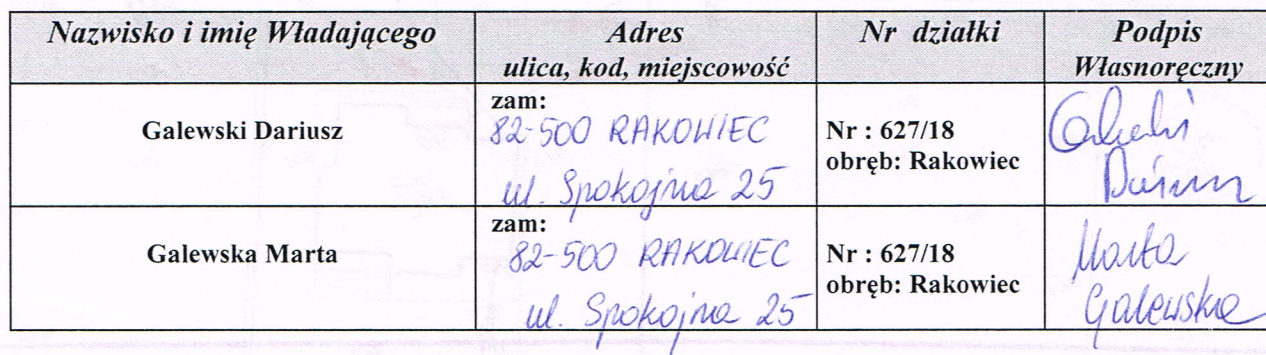 Nazwisko i imię Władającego
Adres
ulica, kod, miejscowość
Nr działki
Podpis
Własnoręczny
Galewski Dariusz
zam:
82-500 RAKOWIEC
ul. Spokojna 25
Nr : 627/18
obręb: Rakowiec
Galewska Marta
zam:
82-500 RAKOWIEC
ul. Spokojna 25
Nr : 627/18
obręb: Rakowiec
Marta
Galewska